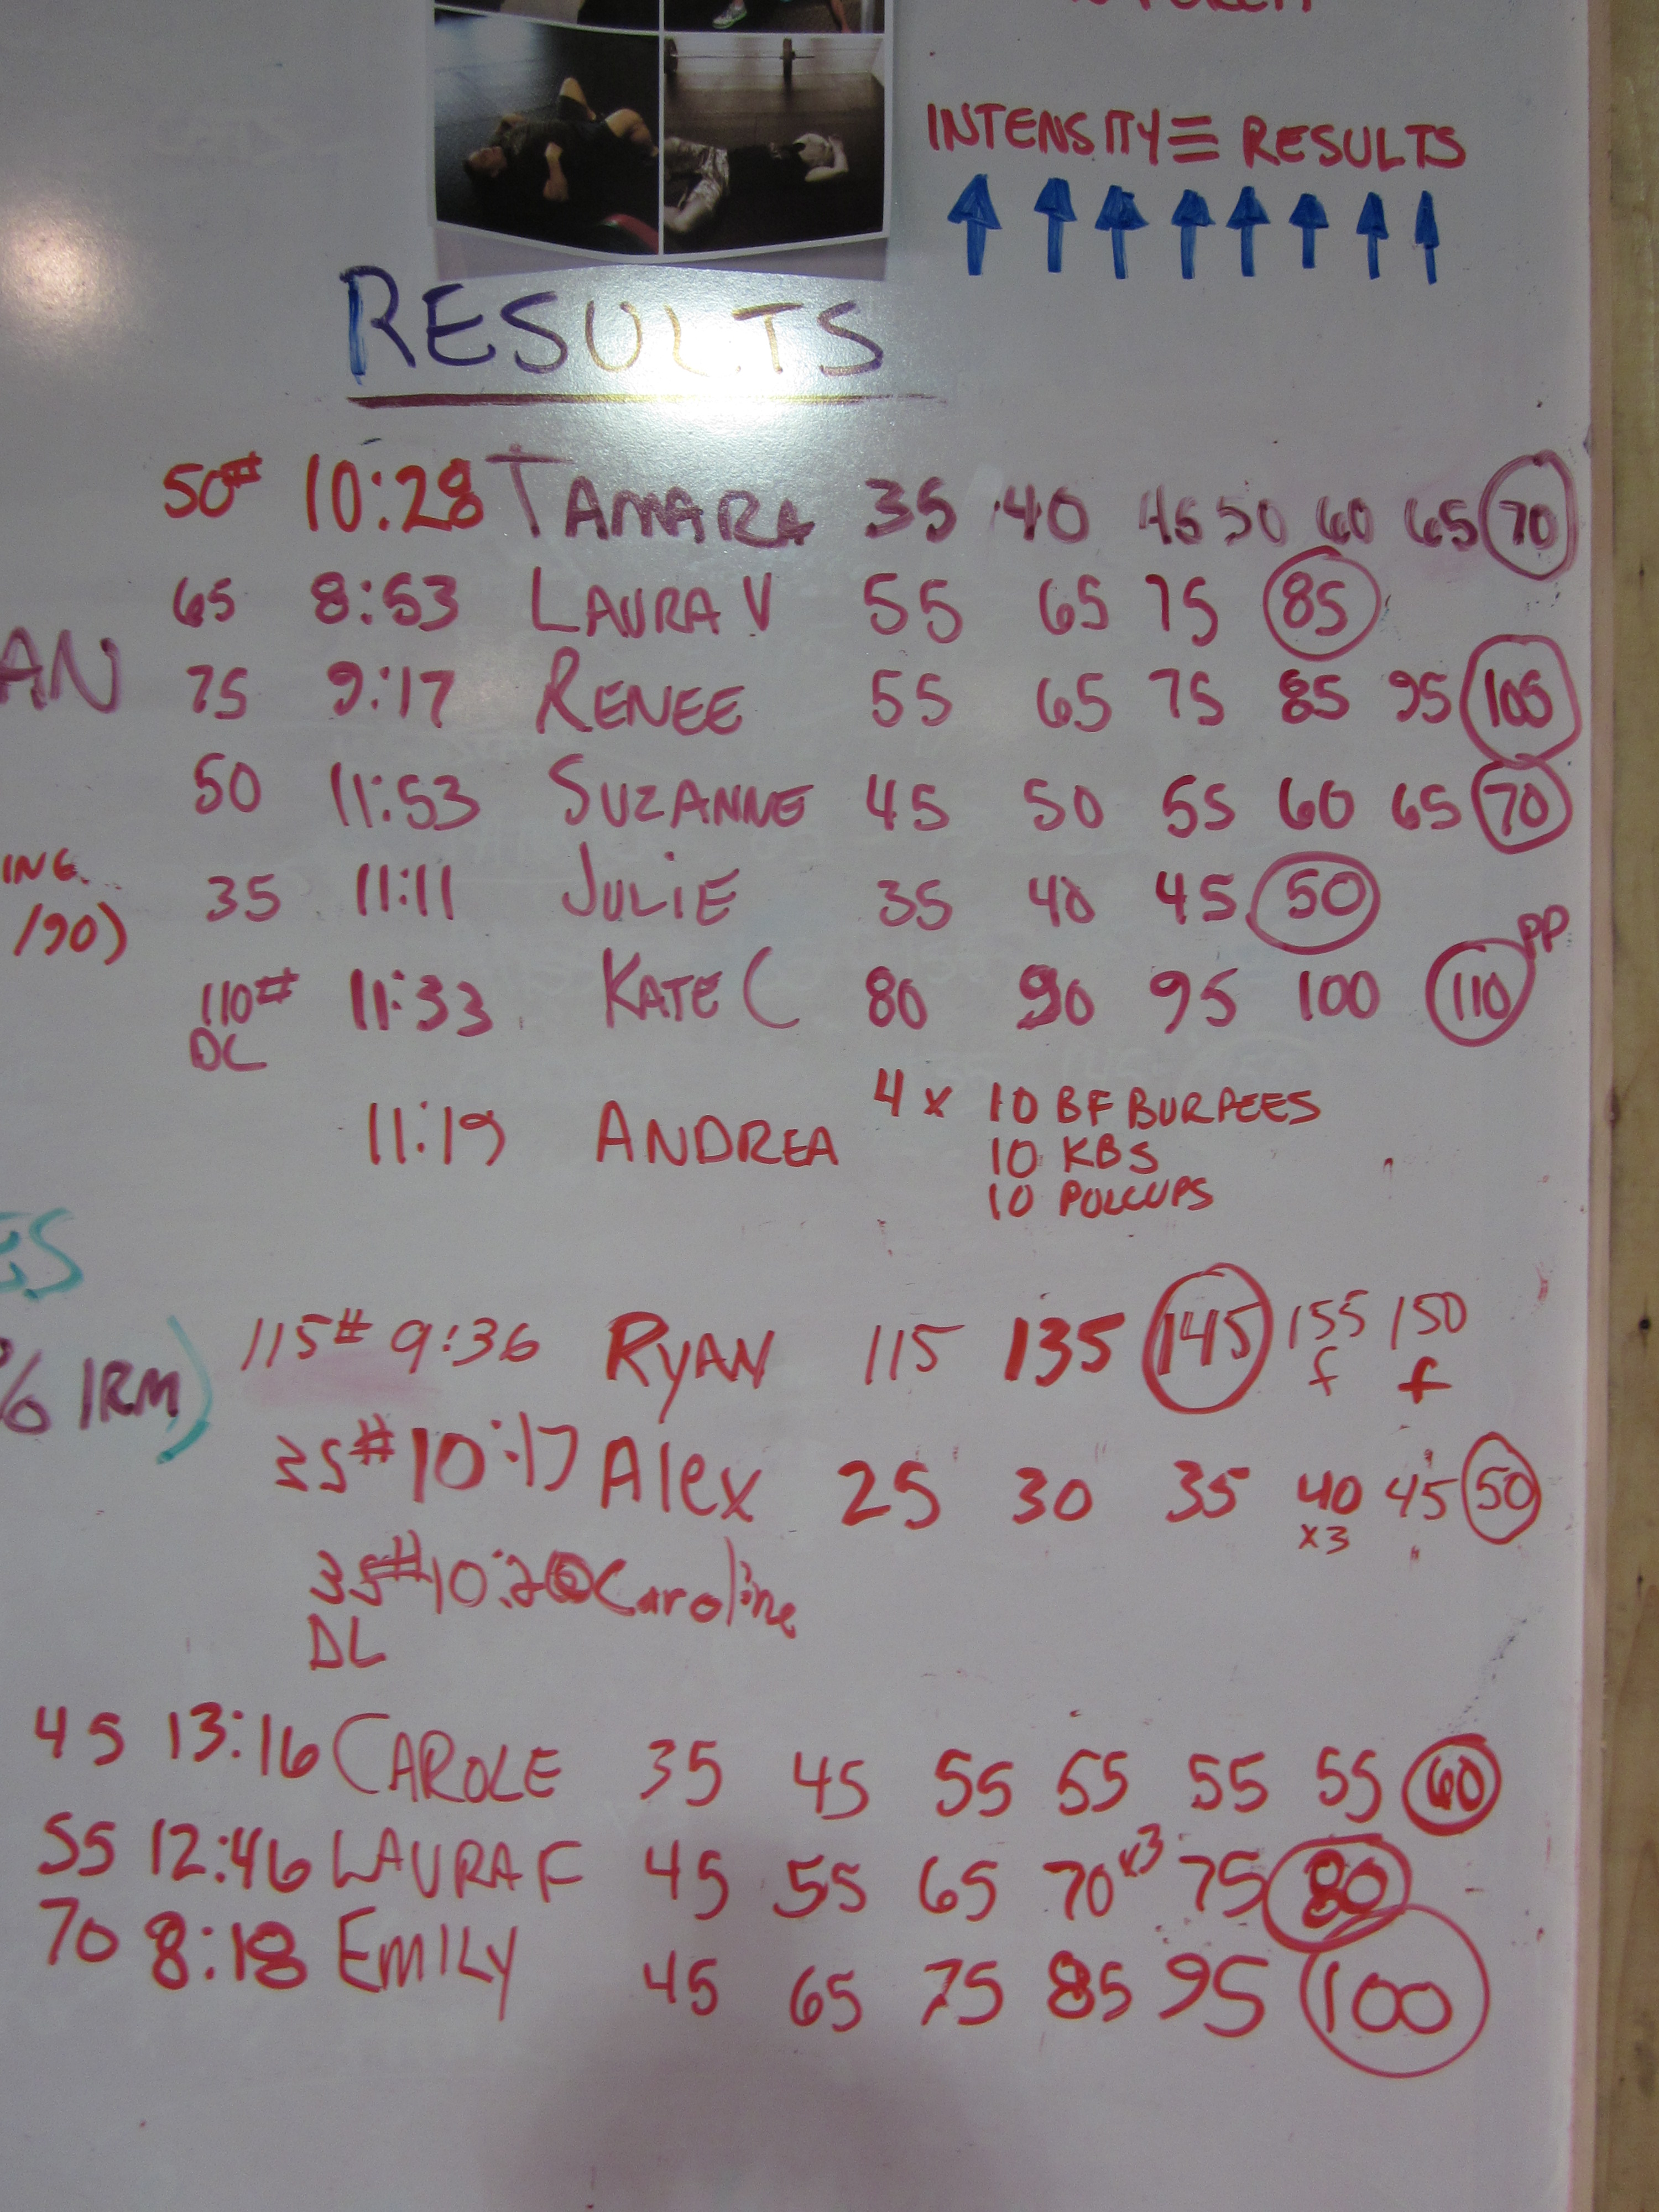 INTENSITY ≡ RESULTS
RESULTS
50# 10:28 TAMARA 35 40 45 50 60 65 70
65 8:53 LAURA V 55 65 75 85
AN 75 9:17 RENEE 55 65 75 85 95 105
50 11:53 SUZANNE 45 50 55 60 65 70
ING
35 11:11 JULIE 35 40 45 50
/90)
110# 11:33 KATE C 80 90 95 100 110 PP
DL
11:19 ANDREA 4 x 10 BF BURPEES
10 KBS
10 PULLUPS
ES
115# 9:36 RYAN 115 135 145 155 150
f f
% 1RM)
35# 10:17 Alex 25 30 35 40 45 50
x3
35# 10:20 Caroline
DL
45 13:16 CAROLE 35 45 55 55 55 55 60
55 12:46 LAURA F 45 55 65 70 x3 75 80
70 8:18 EMILY 45 65 75 85 95 100